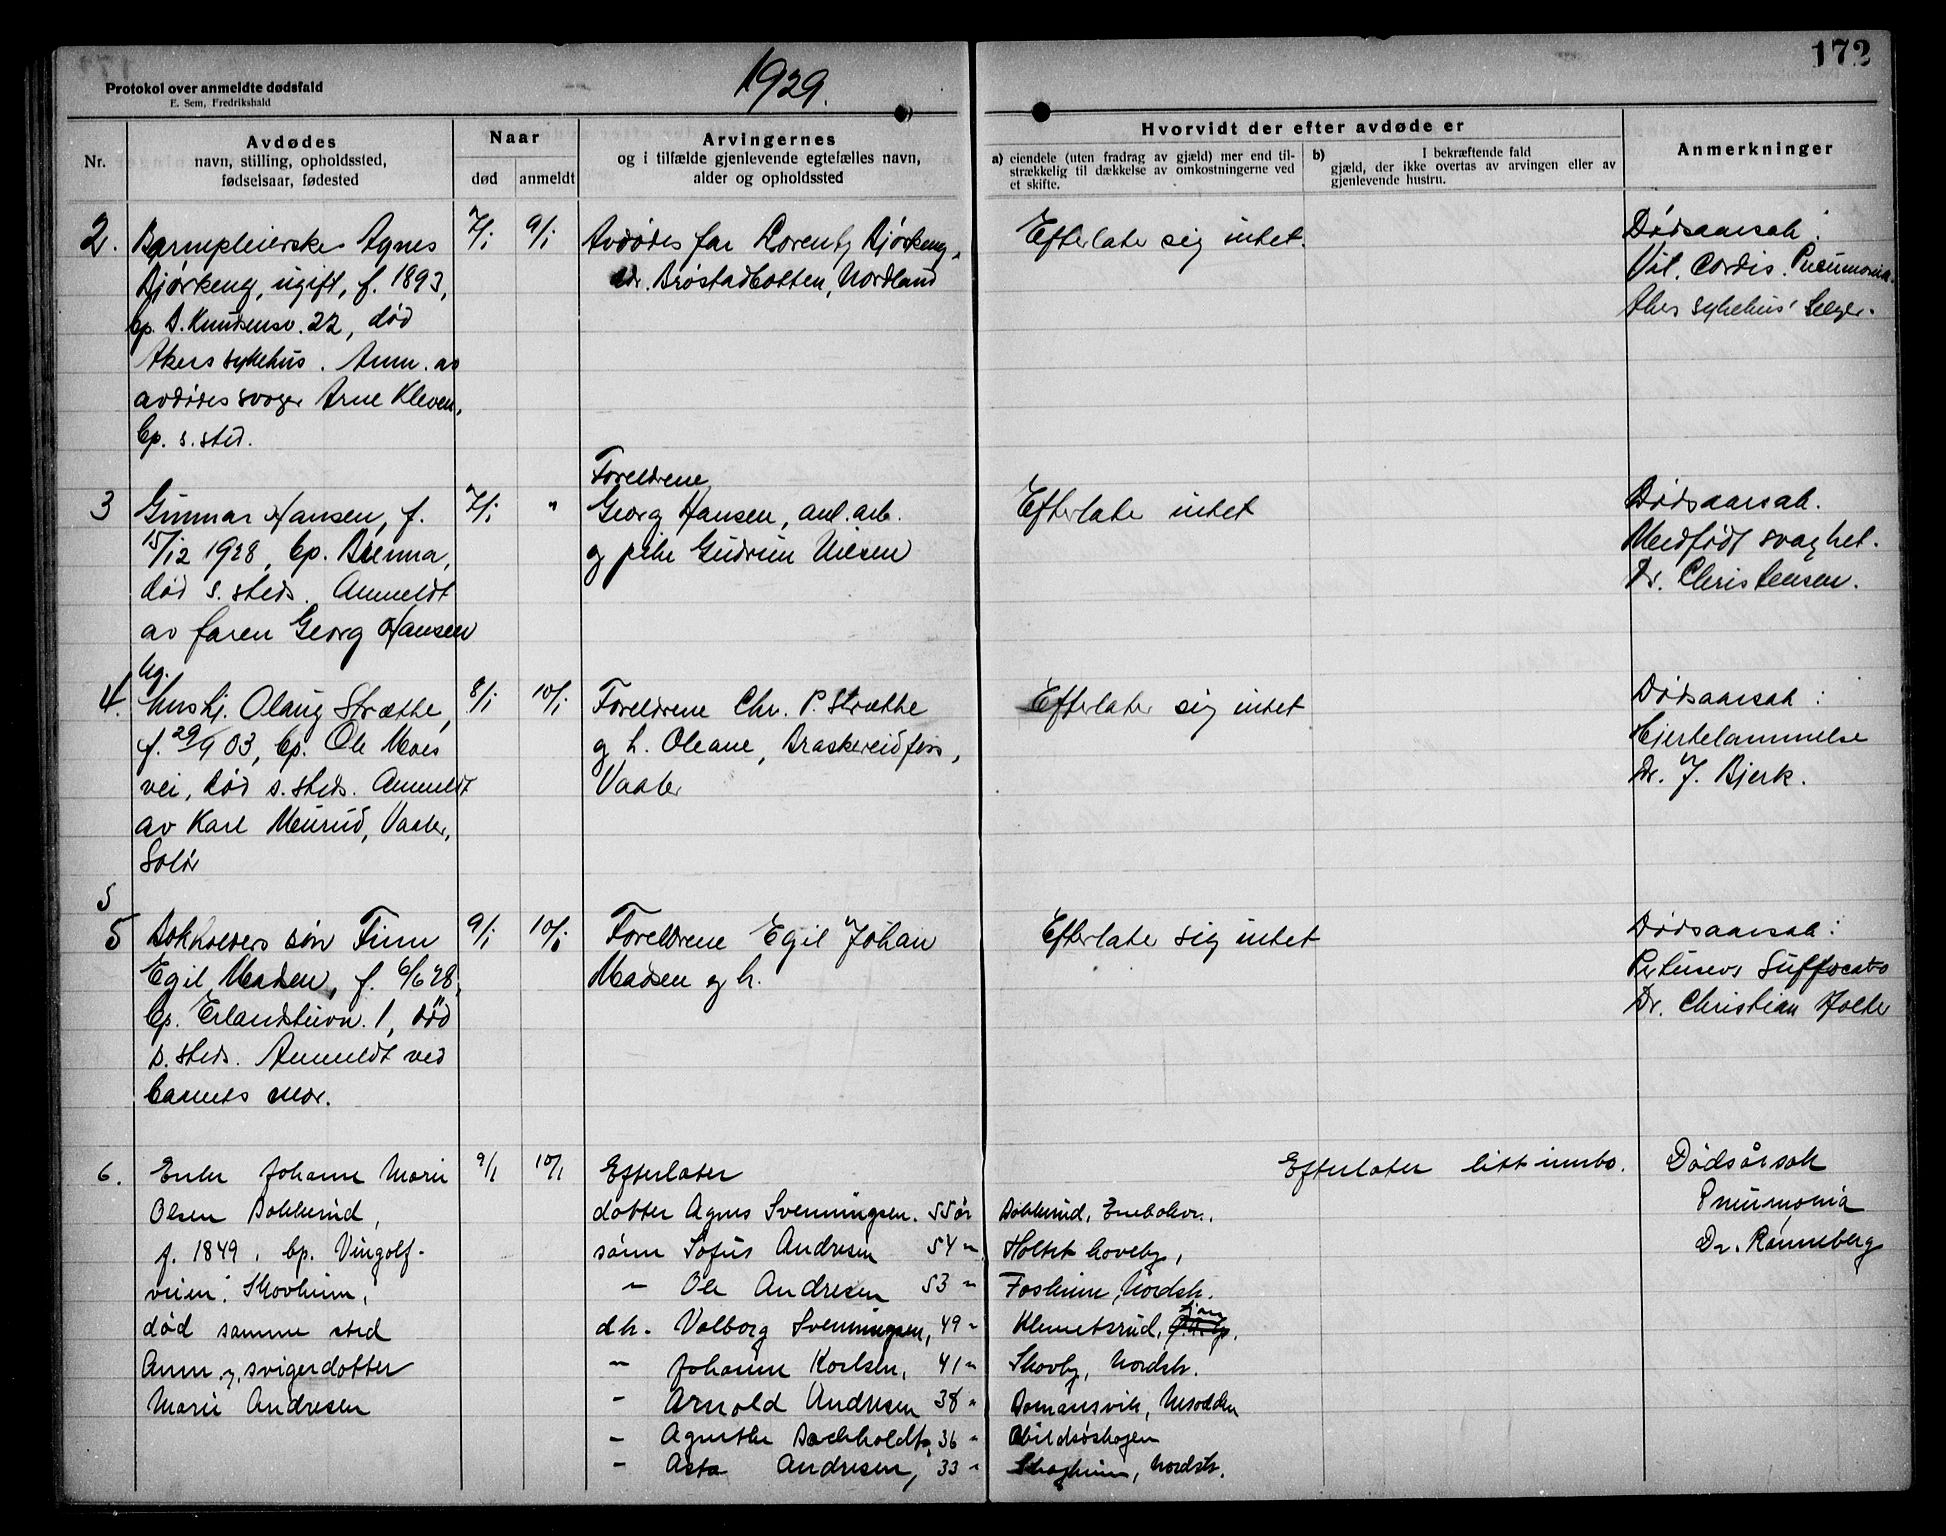 172
Protokol over anmeldte dødsfald
E. Sem, Fredrikshald
1929.
Nr.
Avdødes
navn, stilling, opholdssted,
fødselsaar, fødested
Naar
død
anmeldt
Arvingernes
og i tilfælde gjenlevende egtefælles navn,
alder og opholdssted
Hvorvidt der efter avdøde er
a) eiendele (uten fradrag av gjæld) mer end til-
strækkelig til dækkelse av omkostningerne ved
et skifte.
b) I bekræftende fald
gjæld, der ikke overtas av arvingen eller av
gjenlevende hustru.
Anmerkninger
2.
Barnepleierske Agnes
Bjørkeng, ugift, f. 1893,
bp. A. Knudsensv. 22, død
Akers sykehus. Anm. av
avdødes svoger Arne Kleven,
bp. s. sted.
7/1
9/1
Avdødes far Lorentz Bjørkeng,
adr. Brøstadbotten, Nordland
Efterlater sig intet.
Dødsaarsak:
Vit. cordis. Pneumonia.
Akers sykehus'
3
Gunnar Hansen, f.
15/12 1928, bp.
død s. steds. Anmeldt
av faren Georg Hansen
7/1
"
Foreldrene
Georg Hansen, anl. arb.
og pike Gudrun Nilsen
Efterlater intet
Dødsaarsak.
Medfødt svaghet.
Dr. Christensen.
4.
ug.
hushj. Olaug Stræthe,
f. 29/9 03, bp. Ole Moes
vei, død s. steds. Anmeldt
av Karl Meurud, Vaaler,
Solør
8/1
10/1
Foreldrene Chr. P. Stræthe
og h. Oleane, Braskereidfoss,
Vaaler
Efterlater sig intet
Dødsaarsak:
Hjertelammelse
Dr. J. Bjerk.
5
5
Bokholders søn Finn
Egil Madsen, f. 6/6 28,
bp. Erlandstuvn. 1, død
s. steds. Anmeldt ved
barnets mor.
9/1
10/1
Foreldrene Egil Johan
Madsen og h.
Efterlater sig intet
Dødsaarsak:
Suffocatio
Dr. Christian Holter
6.
Enke Johanne Marie
Olsen Bakkerud,
f. 1849, bp. Vingolf-
veien: Skovheim,
død samme sted
Anm. av svigerdotter
Marie Andresen
9/1
10/1
Efterlater
dotter Agnes Svenningsen. 55 år Bakkerud, Enebakv.,
sønn Sofus Andresen 54 " Holtet hoveby,
" Ole Andresen 53 " Fosheim, Nordstr.
dtr. Valborg Svenningsen, 49 " Klemetsrud,
" Johanne Karlsen, 41 " Skovby, Nordstr.
" Arnold Andresen 38 " Nesodden
" Agnethe 36 " Abildsøhagen
" Asta Andresen, 33 " Skogheim, Nordstr.
Efterlater litt innbo.
Dødsårsak
Pneumonia
Dr. Rønneberg